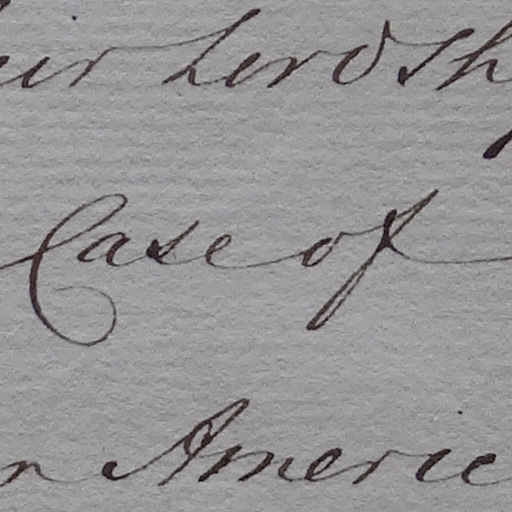 Lordsh
Case of
Americ